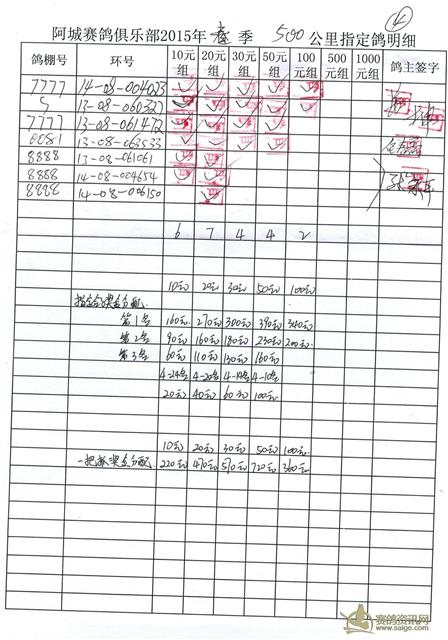 ④
阿城赛鸽俱乐部2015年 春 季 500 公里指定鸽明细
鸽棚号 环号 10元组 20元组 30元组 50元组 100元组 500元组 1000元组 鸽主签字
7777 14-08-004023 ✓ ✓ ✓ ✓ ✓
5 13-08-060327 ✓ ✓ ✓ ✓ ✓
7777 13-08-061472 ✓ ✓ ✓ ✓
0081 13-08-063533 ✓ ✓ ✓ ✓
8888 13-08-061061 ✓ ✓
8888 14-08-004654 ✓ ✓
8888 14-08-006150 ✓
6 7 4 4 2
10元 20元 30元 50元 100元
指定鸽奖金分配
第1名 160元 270元 300元 390元 340元
第2名 90元 160元 180元 230元 200元
第3名 60元 110元 130元 160元
4-24名 4-20名 4-14名 4-10名
20元 40元 60元 100元
10元 20元 30元 50元 100元
一把抓奖金分配 220元 470元 510元 720元 360元
赛鸽资讯网
www.saige.com